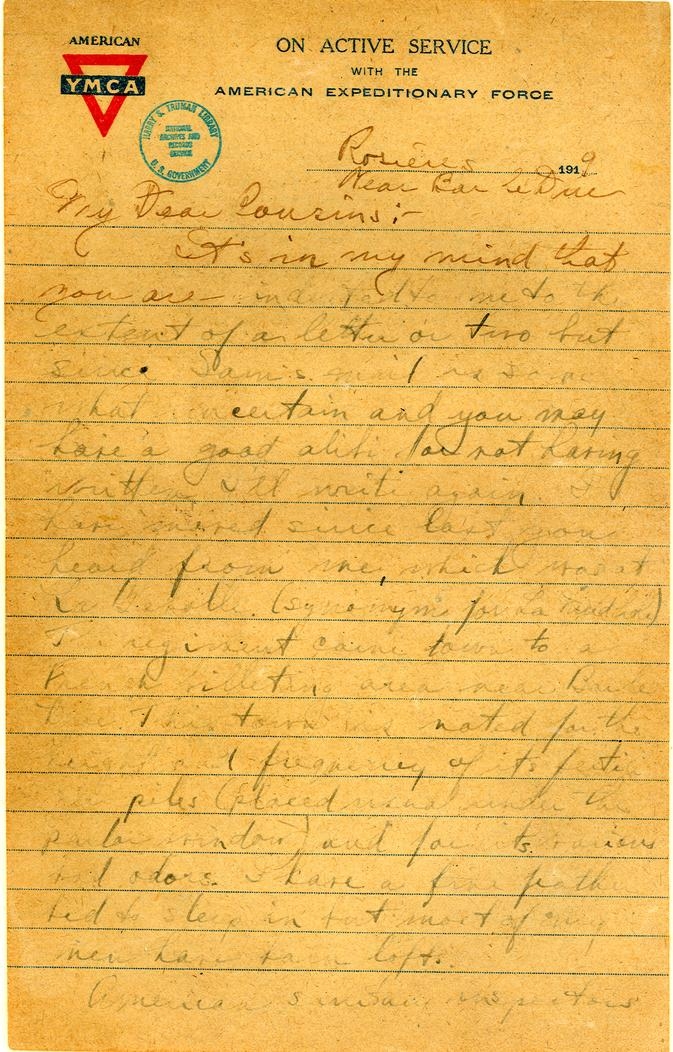 AMERICAN
YMCA
ON ACTIVE SERVICE
WITH THE
AMERICAN EXPEDITIONARY FORCE
HARRY S. TRUMAN LIBRARY
NATIONAL
ARCHIVES AND
RECORDS
SERVICE
U.S. GOVERNMENT
Rosières 1919
Near Bar le Duc
My Dear Cousins:-
It's in my mind that
you are indebted to me to the
extent of a letter or two but
since Sam's mail is some
what uncertain and you may
have a good alibi for not having
written I'll write again. I
have moved since last you
heard from me, which was at
La Beholle. (synonym for La mud hole)
The regiment came down to a
French billeting area near Bar le
Duc. This town is noted for the
height and frequency of its
piles (placed under the
parlor window) and for its various
bad odors. I have a fine feather
bed to sleep in but most of my
men have barn lofts.
American sanitary inspectors